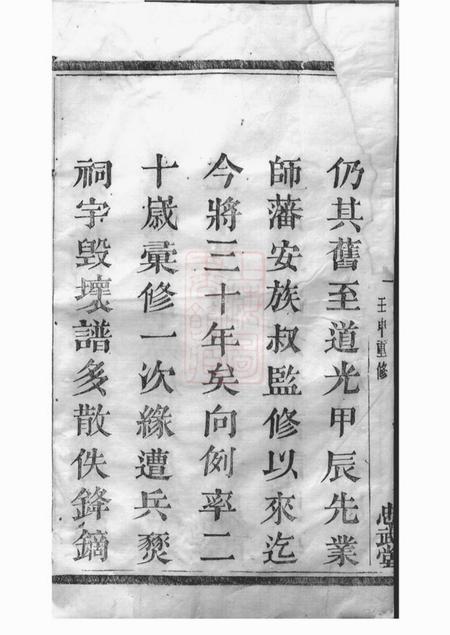 壬申重修
忠武堂
仍其舊至道光甲辰先業
師藩安族叔監修以來迄
今將三十年矣向例率二
十歲彙修一次緣遭兵燹
祠宇毀壞譜多散佚鋒鏑